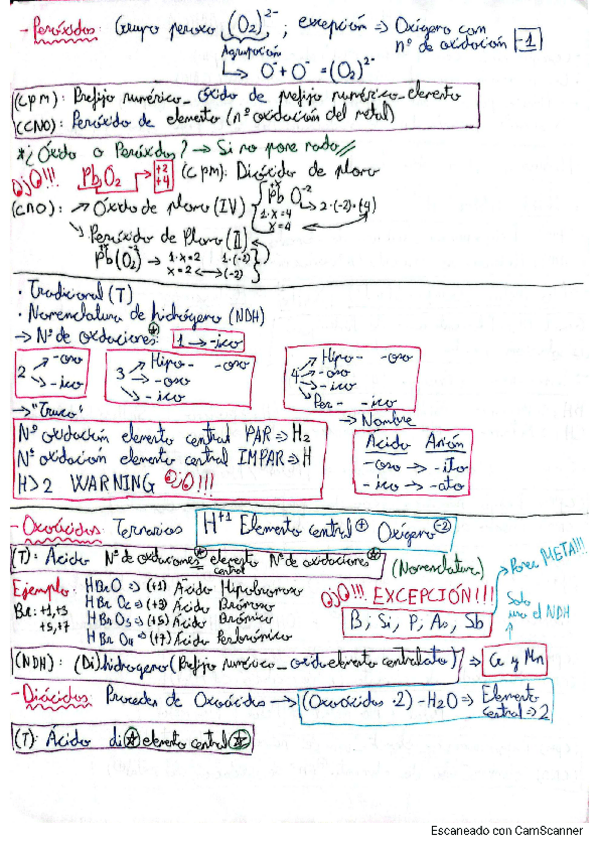 - Peróxidos: Grupo peroxo (O₂)²⁻ ; excepción ⇒ Oxígeno con nº de oxidación -1
Agrupación
↳ O⁻ + O⁻ = (O₂)²⁻
(CPM): Prefijo numérico_ óxido de prefijo numérico_elemento
(CCNO): Peróxido de elemento (nº oxidación del metal)
*¿Óxido o Peróxido? → Si no pone nada//
OJO!!! PbO₂ → +2 +4 (CPM): Dióxido de plomo
(CNO): → Óxido de plomo (IV) Pb O₂⁻² → 2·(-2)=(4)
1·x=4
x=4
↘ Peróxido de Plomo (II)
Pb(O₂)⁻² → 1·x=2 1·(-2)
x=2 ↔ (-2)
· Tradicional (T)
· Nomenclatura de hidrógeno (NDH)
→ Nº de oxidaciones: 1 → -ico
2 → -oso
↘ -ico
3 → Hipo- -oso
→ -oso
↘ -ico
4 → Hipo- -oso
→ -oso
→ -ico
Per- -ico
→ "Truco"
→ Nombre
Nº oxidación elemento central PAR ⇒ H₂
Nº oxidación elemento central IMPAR ⇒ H
H>2 WARNING OJO!!!
Ácido Anión
-oso → -ito
-ico → -ato
- Oxoácidos: Ternarios H⁺¹ Elemento central⁺ Oxígeno⁻²
(T): Ácido Nº de oxidaciones elemento central Nº de oxidaciones
(Nomenclatura)
→ Poner META!!!
Ejemplo: HBrO ⇒ (+1) Ácido Hipobromoso
Br: +1,+3 HBrO₂ ⇒ (+3) Ácido Bromoso
+5,+7 HBrO₃ ⇒ (+5) Ácido Brómico
HBrO₄ ⇒ (+7) Ácido Perbrómico
OJO!!! EXCEPCIÓN!!!
B; Si, P; As, Sb
Solo
uso el NDH
(NDH): (Di)hidrogeno(Prefijo numérico_oxidoelemento centralato) ⇒ Cr y Mn
- Diácidos: Proceden de Oxoácidos → (Oxoácidos ·2) - H₂O ⇒ Elemento Central ⇒ 2
(T): Ácido di elemento central
Escaneado con CamScanner